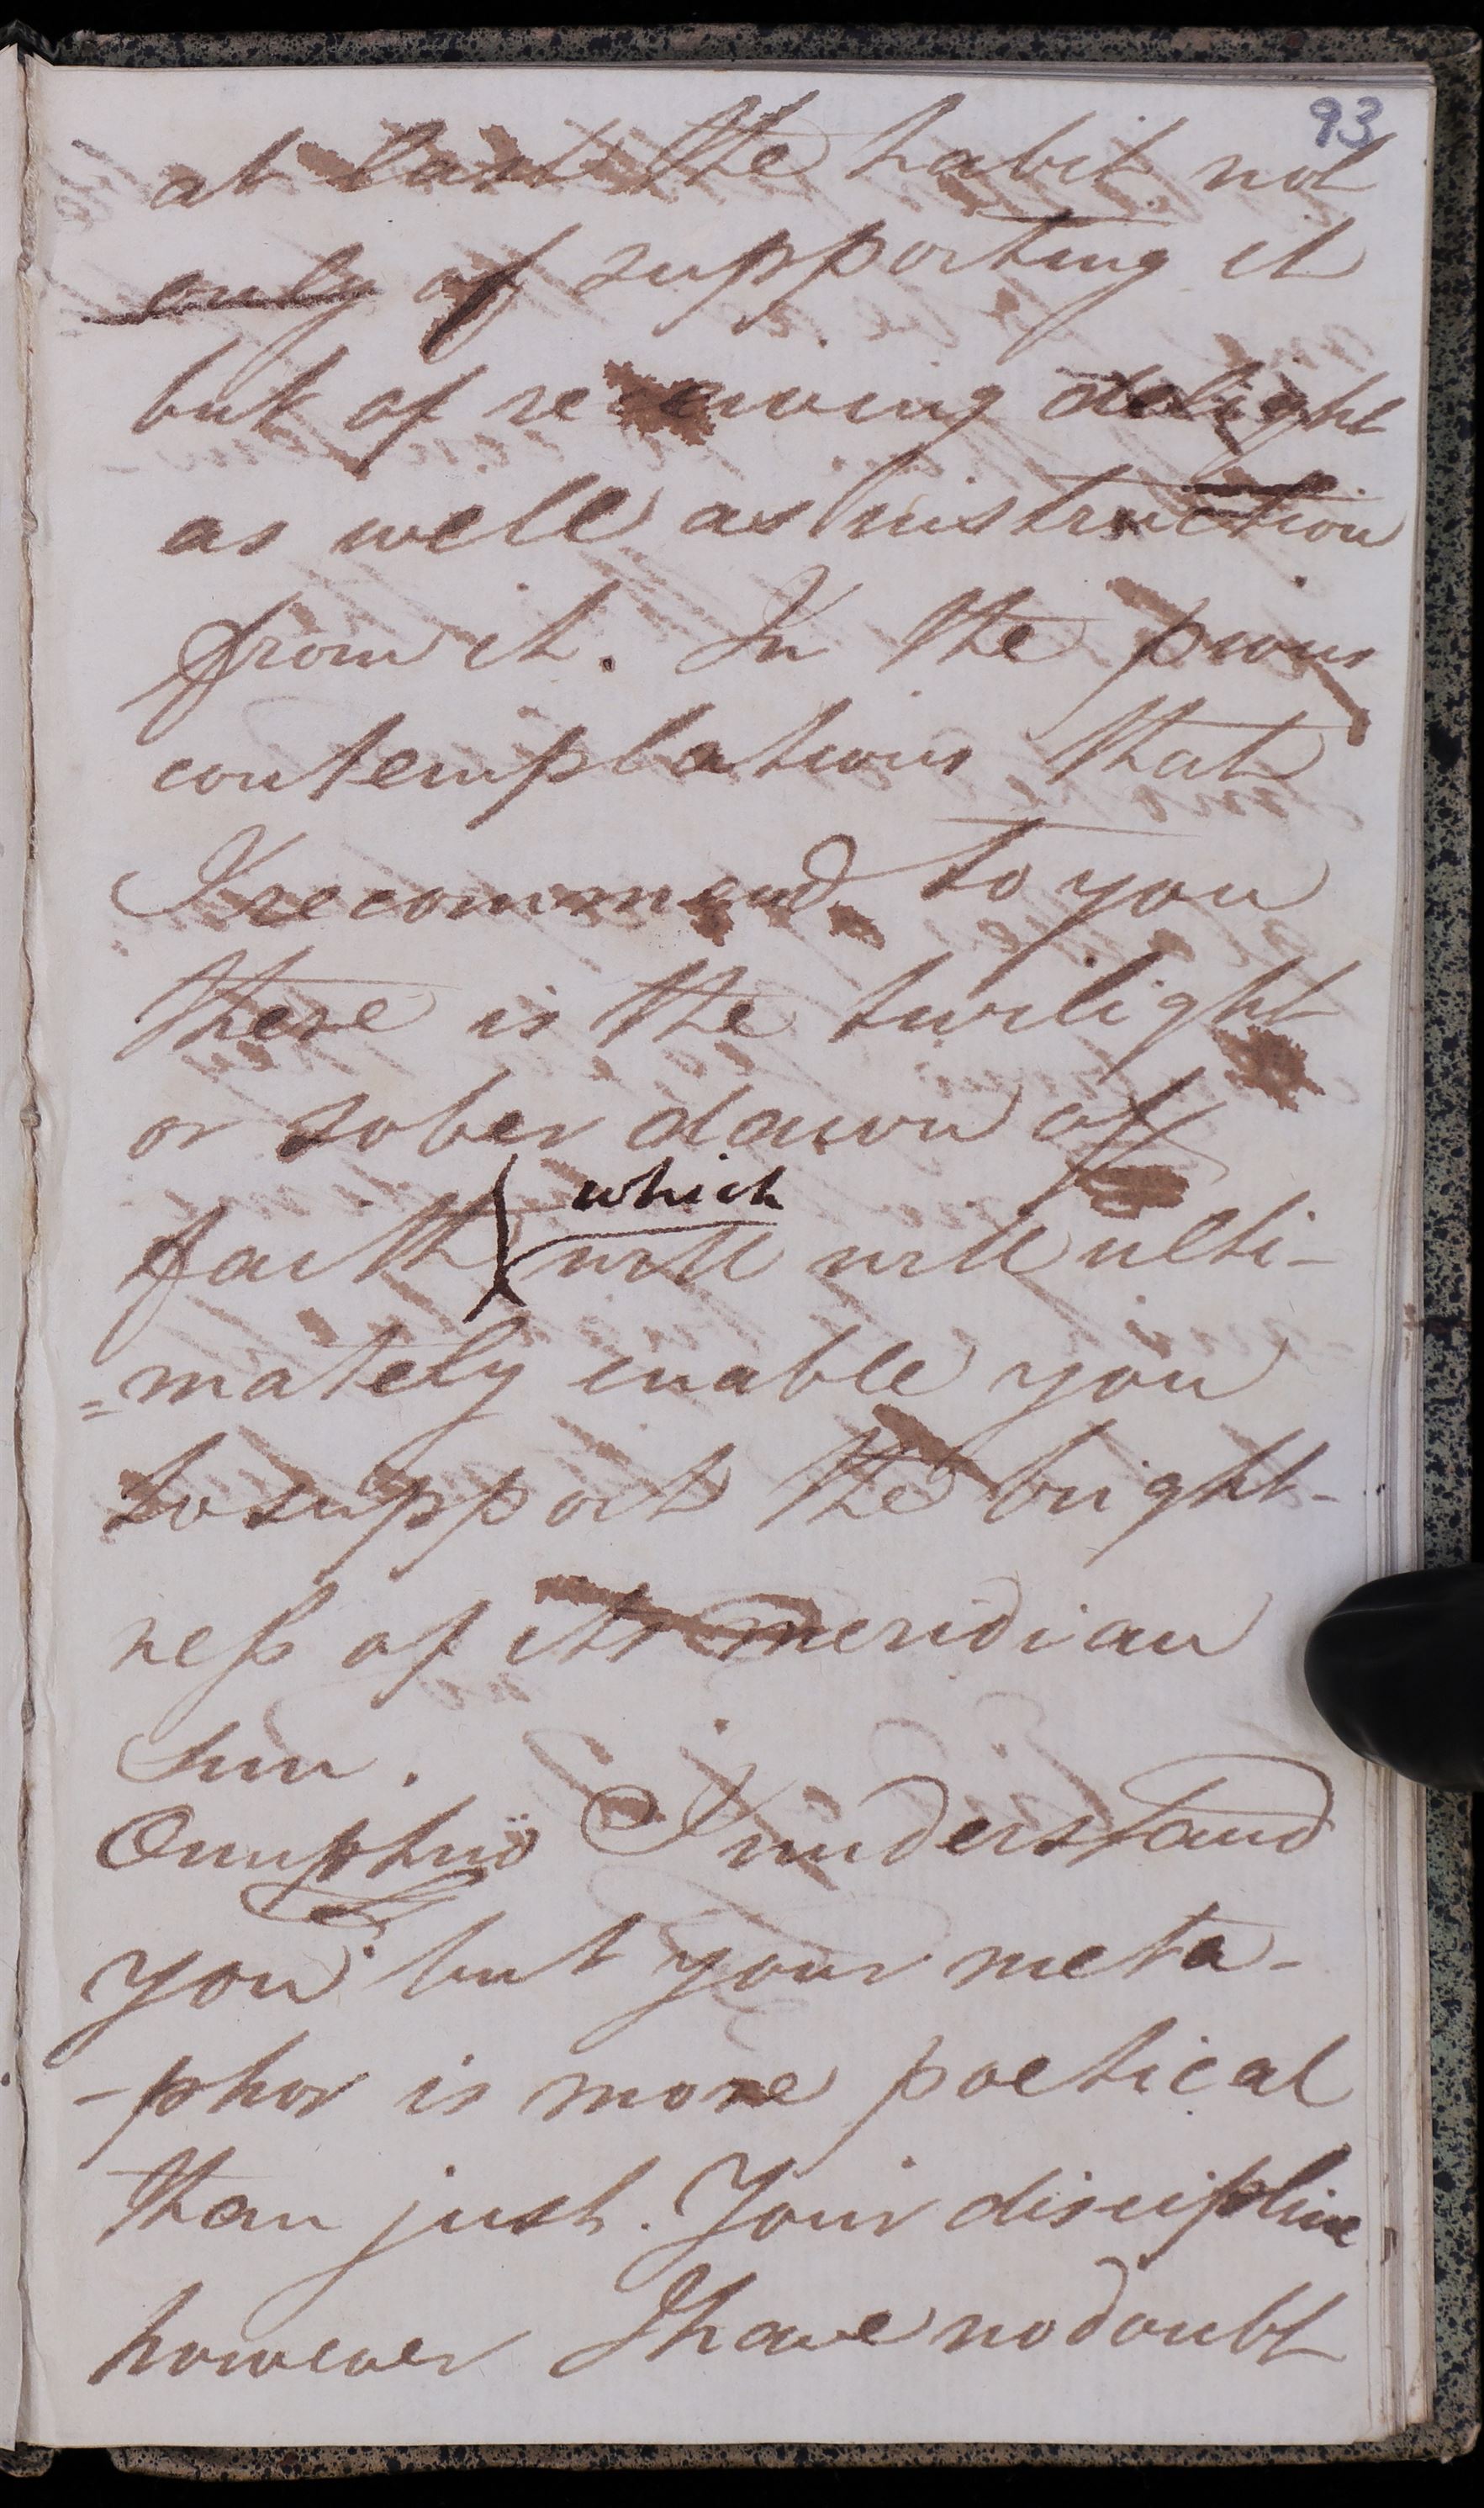 93
at last the habit not
only of supporting it
but of receiving delight
as well as instruction
from it. In the pious
contemplations that
I recommend to you
there is the twilight
or sober dawn of
which
faith will will ulti-
=mately enable you
to support the bright-
neſs of its meridian
Sun.
Onuphrio I understand
you but your meta-
-phor is more poetical
than just. Your discipline
however I have no doubt